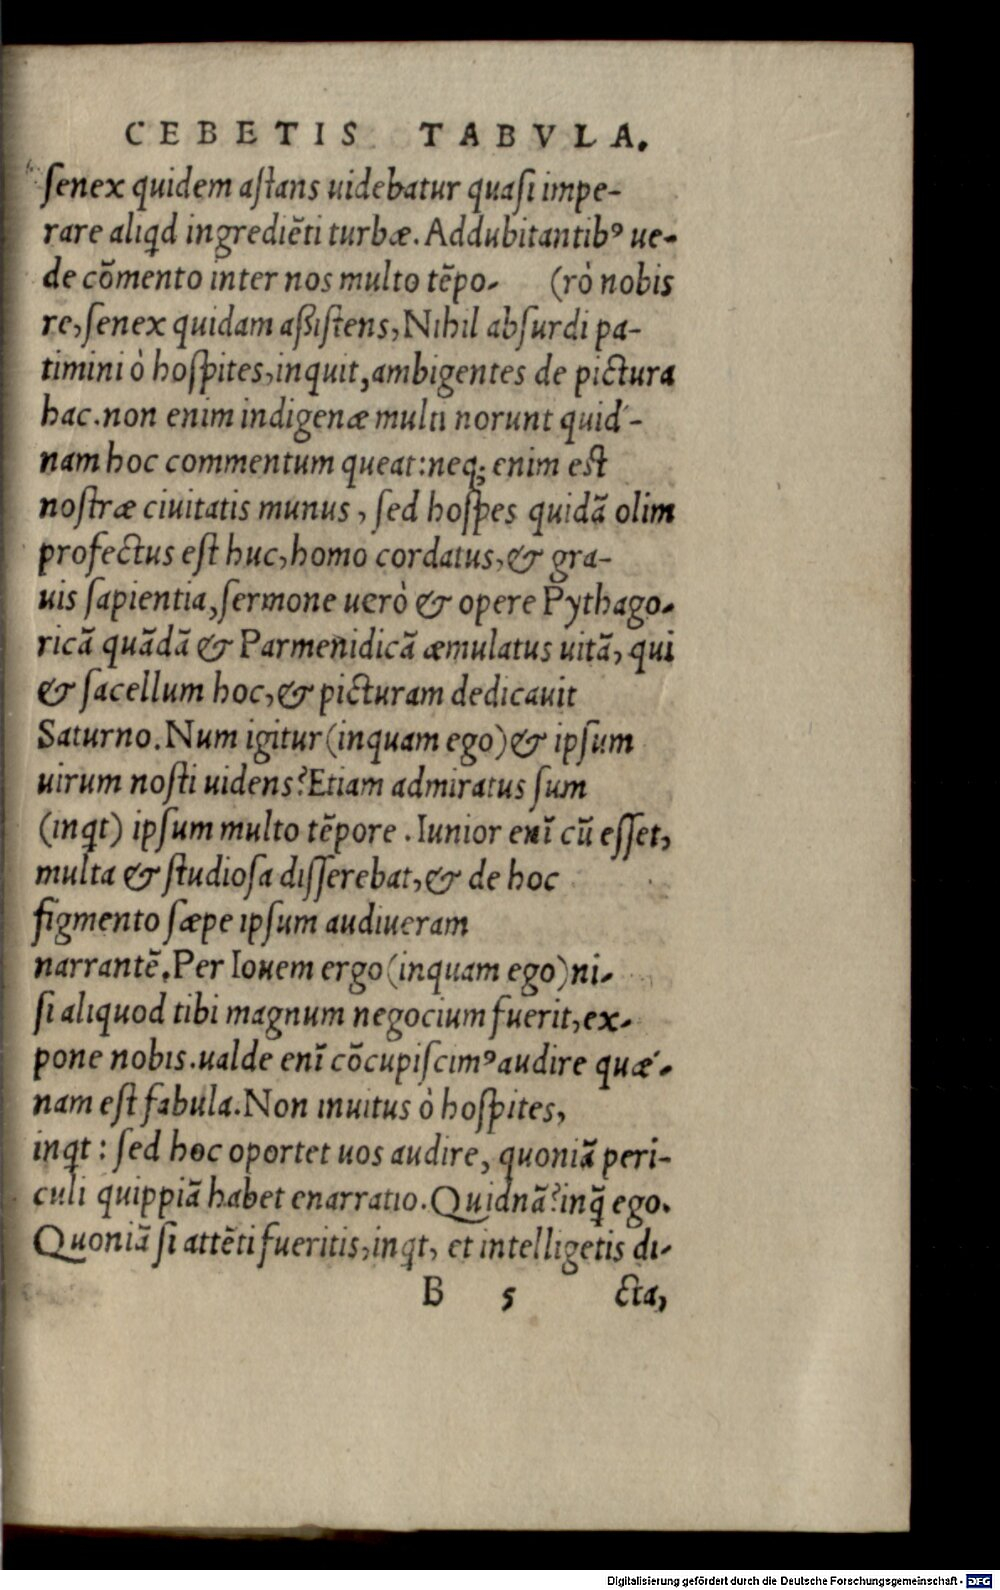 CEBETIS TABVLA.
ſenex quidem aſtans uidebatur quaſi impe-
rare aliqd ingrediẽti turbæ. Addubitantibꝰ ue-
de cõmento inter nos multo tẽpo- (rò nobis
re, ſenex quidam aßiſtens, Nihil abſurdi pa-
timini ò hoſpites, inquit, ambigentes de pictura
hac. non enim indigenæ multi norunt quid-
nam hoc commentum queat: neq; enim eſt
noſtræ ciuitatis munus, ſed hoſpes quidã olim
profectus eſt huc, homo cordatus, & gra-
uis ſapientia, ſermone uerò & opere Pythago-
ricã quãdã & Parmenidicã æmulatus uitã, qui
& ſacellum hoc, & picturam dedicauit
Saturno. Num igitur (inquam ego) & ipſum
uirum noſti uidens? Etiam admiratus ſum
(inqt) ipſum multo tẽpore. Iunior enĩ cũ eſſet,
multa & ſtudioſa diſſerebat, & de hoc
figmento ſæpe ipſum audiueram
narrantẽ. Per Iouem ergo (inquam ego) ni-
ſi aliquod tibi magnum negocium fuerit, ex-
pone nobis. ualde enĩ cõcupiſcimꝰ audire quæ´-
nam eſt fabula. Non inuitus ò hoſpites,
inqt: ſed hoc oportet uos audire, quoniã peri-
culi quippiã habet enarratio. Quidnã? inq̃ ego.
Quoniã ſi attẽti fueritis, inqt, et intelligetis di-
B 5 cta,
Digitalisierung gefördert durch die Deutsche Forschungsgemeinschaft - DFG